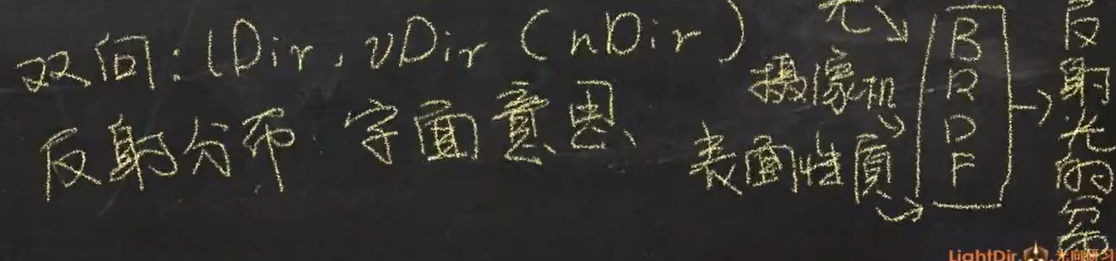 双向:lDir,vDir(nDir)
反射分布 字面意思
光
摄像机
表面性质
BRDF
反射光的分布
LightDir